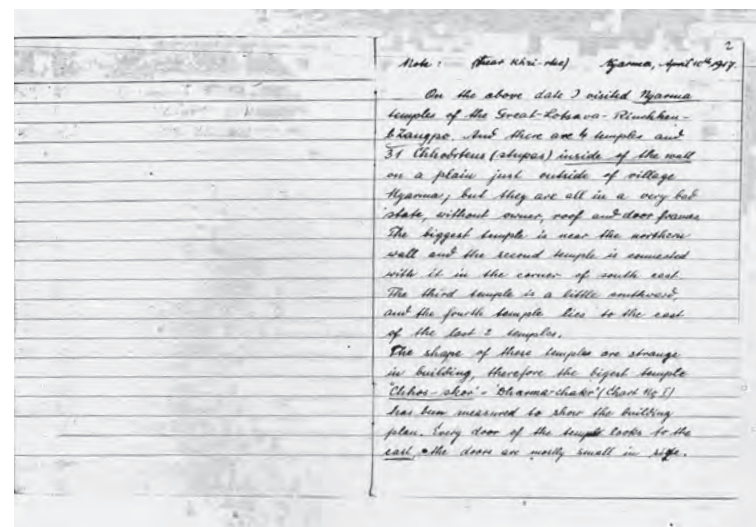 2
Note : (near Khri-rtse) Nyarma, April 10th 1917.
On the above date I visited Nyarma
temples of the Great-Lotsava-Rinchhen-
bZangpo. And there are 4 temples and
31 Chhodrtens (stupas) inside of the wall
on a plain just outside of village
Nyarma; but they are all in a very bad
state, without owner, roof and door frames
The biggest temple is near the northern
wall and the second temple is connected
with it in the corner of south east
The third temple is a little southward,
and the fourth temple lies to the east
of the last 2 temples.
The shape of these temples are strange
in building, therefore the bigest temple
"Chhos-skor" = 'Dharma-chakr' (Chart No I)
has been measured to show the building
plan. Every door of the temple looks to the
east, the doors are mostly small in size.